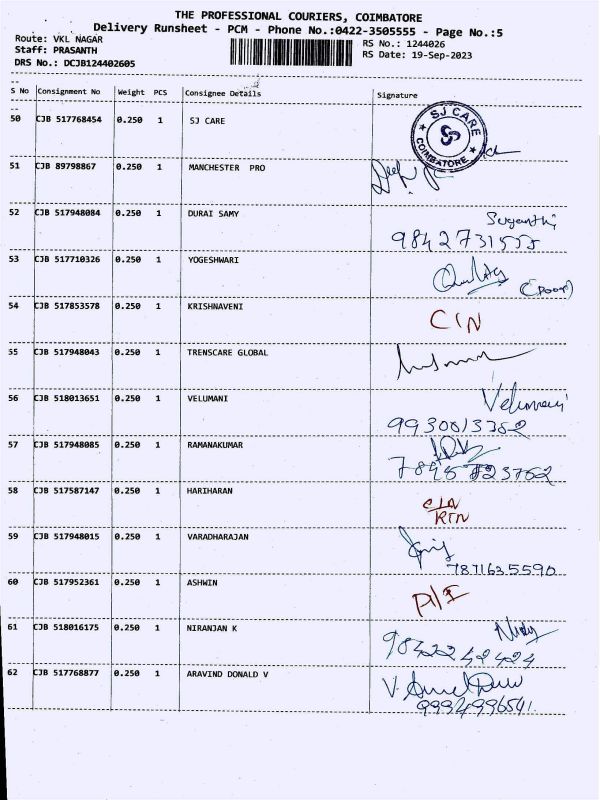 THE PROFESSIONAL COURIERS, COIMBATORE
Delivery Runsheet - PCM - Phone No.:0422-3505555 - Page No.:5
Route: VKL NAGAR
Staff: PRASANTH
DRS No.: DCJB124402605
RS No.: 1244026
RS Date: 19-Sep-2023
S No Consignment No Weight PCS Consignee Details Signature
50 CJB 517768454 0.250 1 SJ CARE
SJ CARE
COIMBATORE
51 CJB 89798867 0.250 1 MANCHESTER PRO
52 CJB 517948084 0.250 1 DURAI SAMY
Suganthi
9842731555
53 CJB 517710326 0.250 1 YOGESHWARI
54 CJB 517853578 0.250 1 KRISHNAVENI
C/N
55 CJB 517948043 0.250 1 TRENSCARE GLOBAL
56 CJB 518013651 0.250 1 VELUMANI
Velumani
9930013352
57 CJB 517948085 0.250 1 RAMANAKUMAR
58 CJB 517587147 0.250 1 HARIHARAN
C/N
RTN
59 CJB 517948015 0.250 1 VARADHARAJAN
7871635590
60 CJB 517952361 0.250 1 ASHWIN
61 CJB 518016175 0.250 1 NIRANJAN K
9842242424
62 CJB 517768877 0.250 1 ARAVIND DONALD V
9994996541